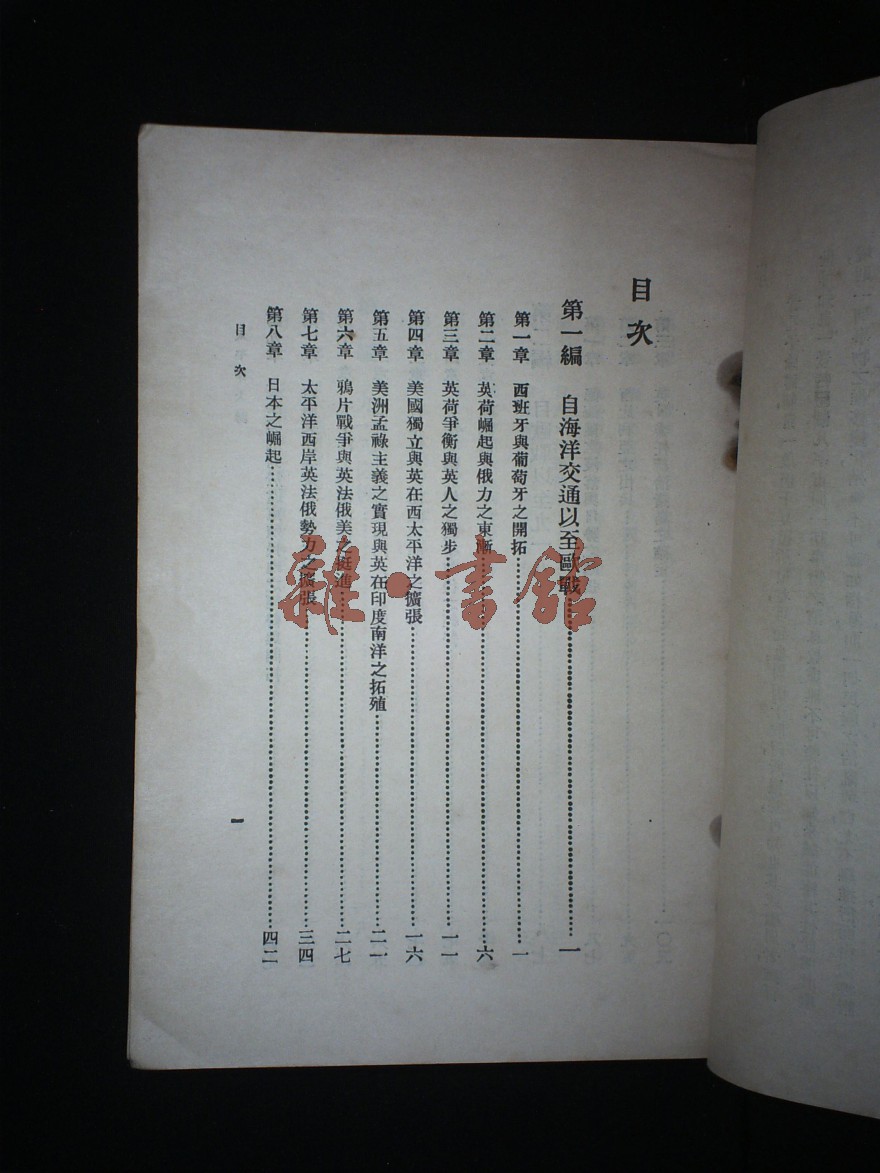 目次
第一編 自海洋交通以至歐戰……一
第一章 西班牙與葡萄牙之開拓……一
第二章 英荷崛起與俄力之東漸……六
第三章 英荷爭衡與英人之獨步……一一
第四章 美國獨立與英在西太平洋之擴張……一六
第五章 美洲孟祿主義之實現與英在印度南洋之拓殖……二一
第六章 鴉片戰爭與英法俄美之挺進……二七
第七章 太平洋西岸英法俄勢力之擴張……三四
第八章 日本之崛起……四二
目次
一
雜·書館